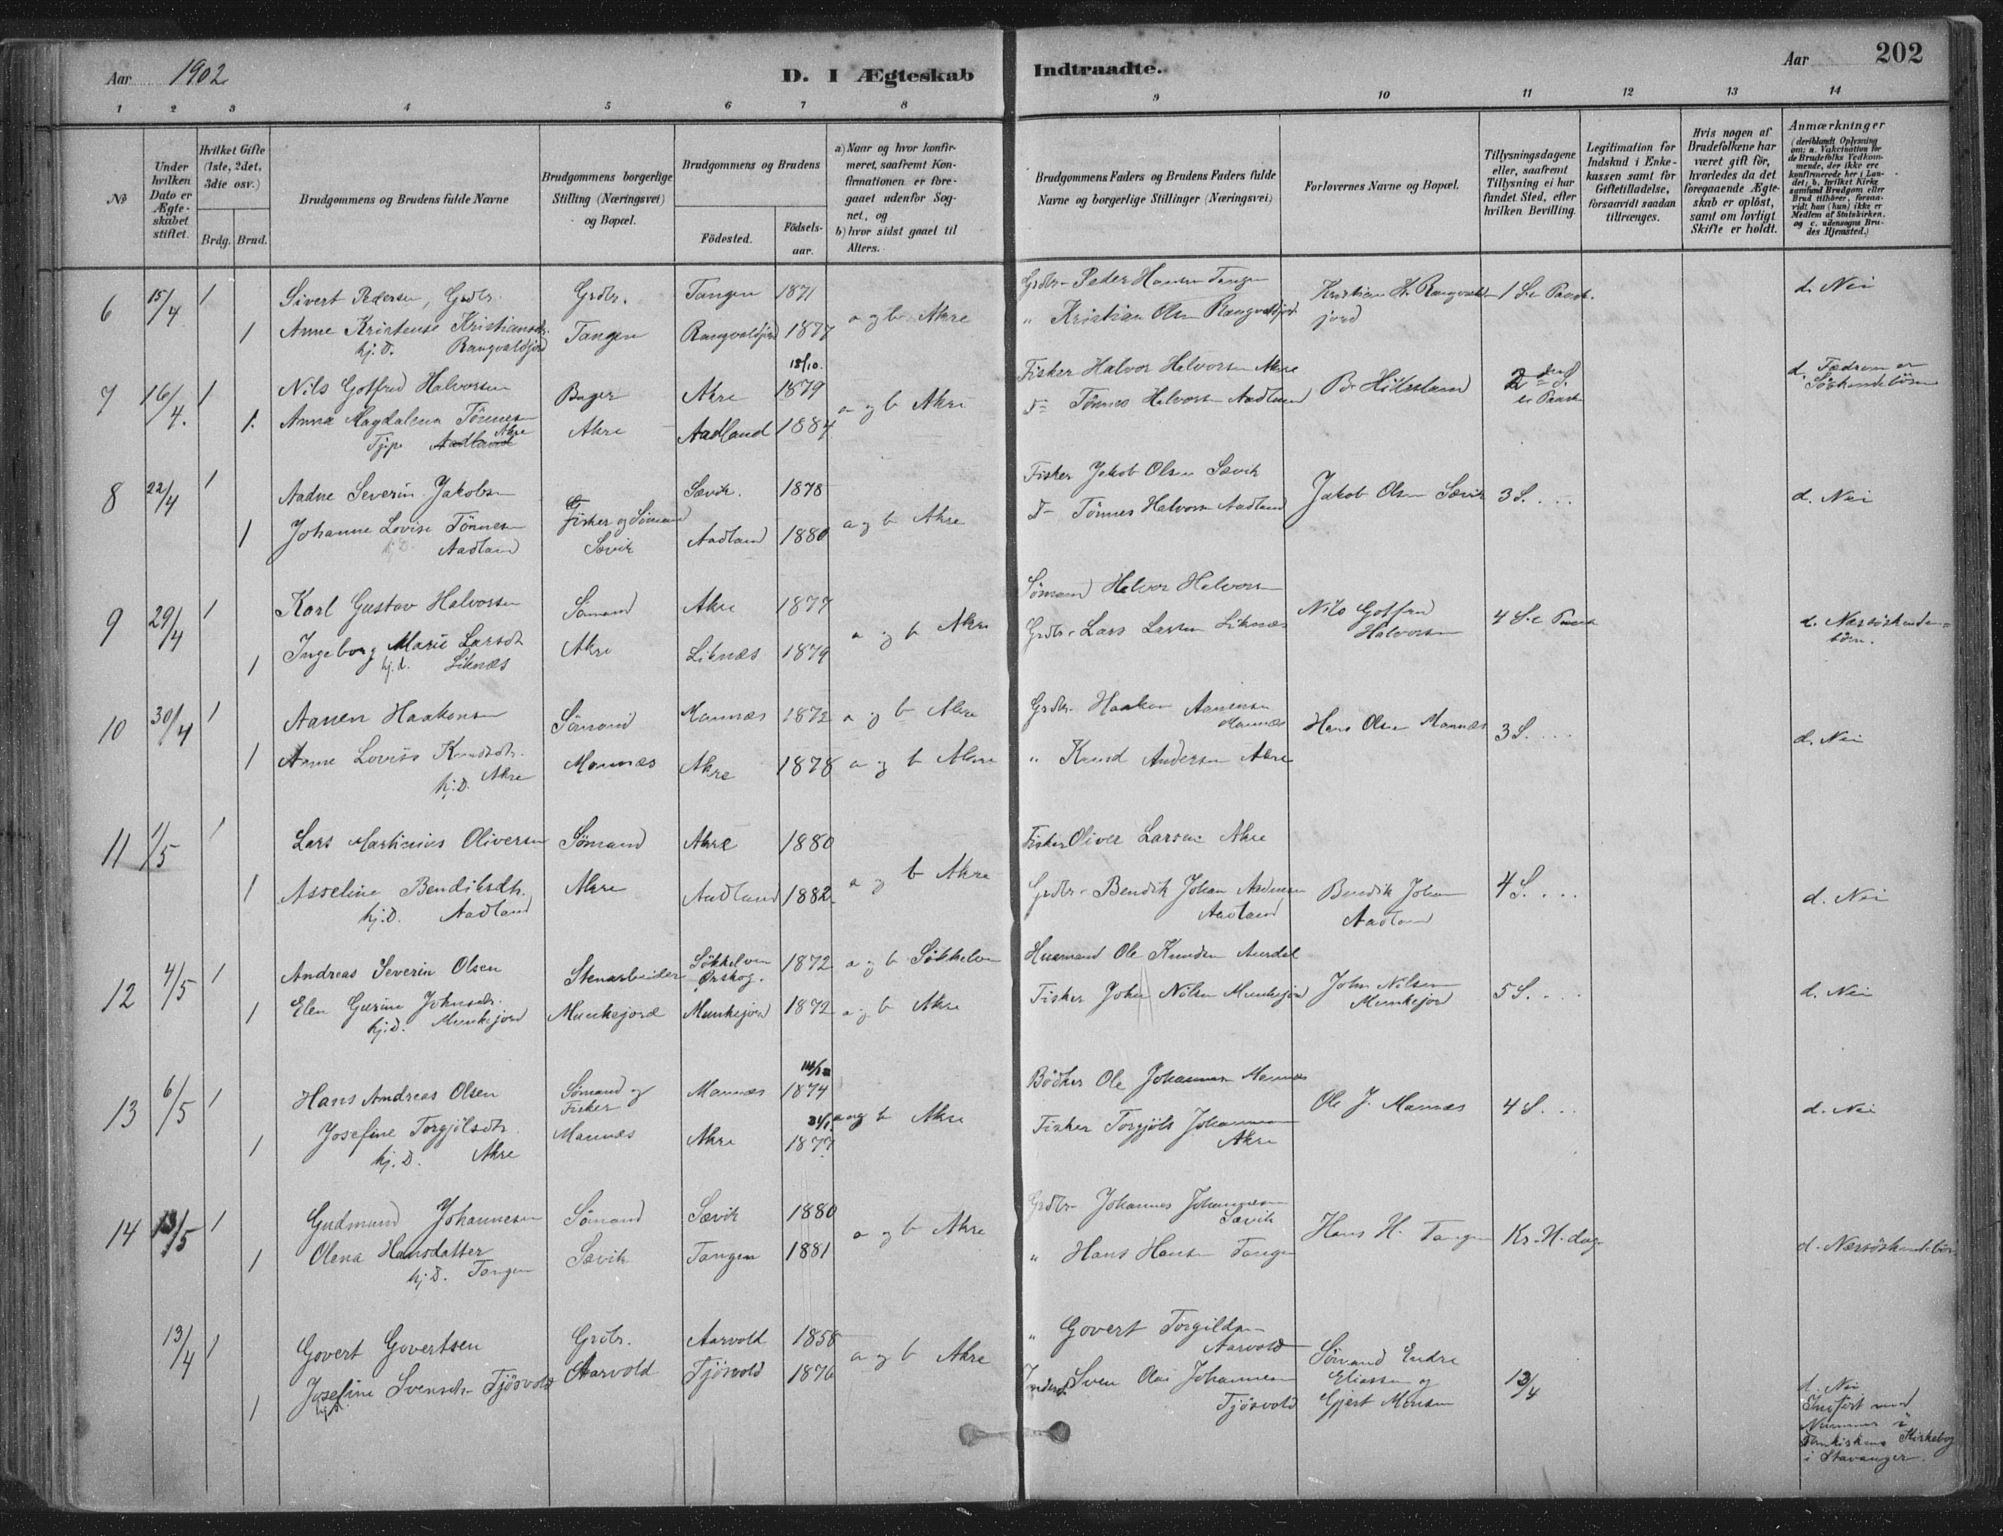 Aar 1902
D. I Ægteskab Indtraadte.
Aar 202
1 2 3 4 5 6 7 8 9 10 11 12 13 14
№
Under hvilken Dato er Ægteskabet stiftet.
Hvilket Gifte (1ste, 2det, 3die osv.)
Brdg. Brud.
Brudgommens og Brudens fulde Navne
Brudgommens borgerlige Stilling (Næringsvei) og Bopæl.
Brudgommens og Brudens
Fødested. Fødselsaar.
a) Naar og hvor konfirmeret, saafremt Konfirmationen er foregaaet udenfor Sognet, og
b) hvor sidst gaaet til Alters.
Brudgommens Faders og Brudens Faders fulde Navne og borgerlige Stillinger (Næringsvei)
Forlovernes Navne og Bopæl.
Tillysningsdagene eller, saafremt Tillysning ei har fundet Sted, efter hvilken Bevilling.
Legitimation for Indskud i Enkekassen samt for Giftetilladelse, forsaavidt saadan tiltrænges.
Hvis nogen af Brudefolkene har været gift før, hvorledes da det foregaaende Ægteskab er opløst, samt om lovligt Skifte er holdt.
Anmærkninger
(deriblandt Oplysning om: a. Vakcination for de Brudefolks Vedkommende, der ikke ere konfirmerede her i Landet; b. hvilket Kirkesamfund Brudgom eller Brud tilhører, forsaavidt han (hun) ikke er Medlem af Statskirken, og c. udensogns Brudes Hjemsted.)
6 15/4 1 Sivert Pedersen, Grdbr. Grdbr. Tangen 1871 a og b Akre Grdbr. Peder Hansen Tangen Kristian H. Rangvaldjord 1 S. e Paask. d. Nei
1 Anne Kristense Kristiansdtr. Tangen Rangvaldjord 1877 " Kristian Olsen Rangvaldjord
hj. D. Rangvaldjord
7 16/4. 1 Nils Gotfred Halvorsen Bager Akre 18/10. 1879 a og b Akre Fisker Halvor Halvorsen Akre B. Hillesland 2den S. e Paaske d. Fædrene er Søskendebörn
1. Anna Magdalena Tönnesen Akre Aadland 1884 Tönnes Halvorsen Aadland
Tjpe Aadland Akre
8 22/4 1 Aadne Severin Jakobsen Fisker og Sömand Sævik. 1878 a og b Akre Fisker Jakob Olsen Sævik Jakob Olsen Sævik 3 S. . . . d. Nei
1 Johanne Lovise Tönnesen Sævik Aadland 1880 Tönnes Halvorsen Aadland
hj. D. Aadland
9 29/4 1 Karl Gustav Halvorsen Sömand Akre 1877 a og b Akre Sömand Halvor Halvorsen Nils Gotfred Halvorsen 4 S. e Paask d. Næssöskendebörn.
1 Ingeborg Marie Larsdt Akre Liknæs 1879 Grdbr. Lars Larsen Liknæs
hj. d. Liknæs
10 30/4 1 Aanen Haakonsen Sömand Mannæs 1872 a og b Akre Grdbr. Haakon Aanensen Mannæs Hans Olsen Mannæs 3 S. . . . d. Nei
1 Anne Lovise Knudsdtr. Mannæs Akre 1878 a og b Akre " Knud Andersen Akre
hj. D. Akre
11 1/5 1 Lars Martinius Oliversen Sömand Akre 1880 a og b Akre Fisker Oliver Larsen Akre
1 Asseline Bendiksdtr. Akre Aadland 1882 Grdbr. Bendik Johan Aadnesen Aadland Bendik Johan Aadland 4 S. . . . d. Nei
hj. D. Aadland
12 4/5 1 Andreas Severin Olsen Stenarbeider Søkkelven Ørskog. 1872 a og b Søkkelven Husmand Ole Knudsen Aurdal John Nilsen Munkejord 5 S. . . . d. Nei
1 Elen Gurine Johnsdtr. Munkejord Munkejord 1872 a og b Akre Fisker John Nilsen Munkejord
hj. D. Munkejord
13 6/5 1 Hans Andreas Olsen Sömand og Fisker Mannæs 1874 a og b Akre Bödker Ole Johannesen Mannæs Ole J. Mannæs 4 S. . . . d. Nei
1 Josefine Torgjölsdtr. Mannæs Akre 1877 Fisker Torgjöls Johannesen Akre
hj. D. Akre
14 13/5 1 Gudmund Johannesen Sömand Sævik 1880 a og b Akre Grdbr. Johannes Johannesen Sævik Hans H. Tangen Kr. H. dag d. Næssöskendebörn
1 Olena Hansdatter Sævik Tangen 1881 " Hans Hansen Tangen
hj. D. Tangen
13/4 1 Govert Govertsen Grdbr. Aarvold 1858 a og b Akre " Govert Torgildsen Aarvold Sömand Endre Eliassen og Gjert Monsen 13/4
1 Josefine Svensdtr Tjösvold Aarvold Tjösvold 1876 Inderst Sven Olai Johannesen Tjösvold
d. Nei
Indfört med Nummer i Domkirkens Kirkebog i Stavanger.